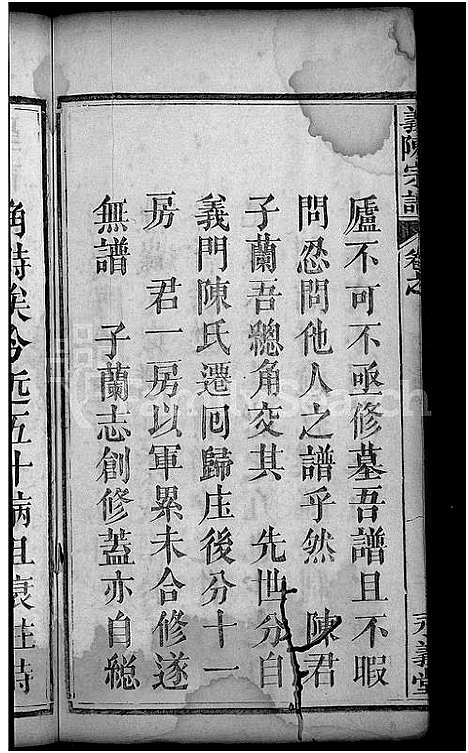 義陳宗譜
卷之
永義堂
廬不可不亟修墓吾譜且不暇
問忍問他人之譜乎然 陳君
子蘭吾總角交其 先世分自
義門陳氏遷回歸庄後分十一
房 君一房以軍累未合修遂
無譜 子蘭志創修蓋亦自總
角時矣今近五十病且衰往時
FamilySearch